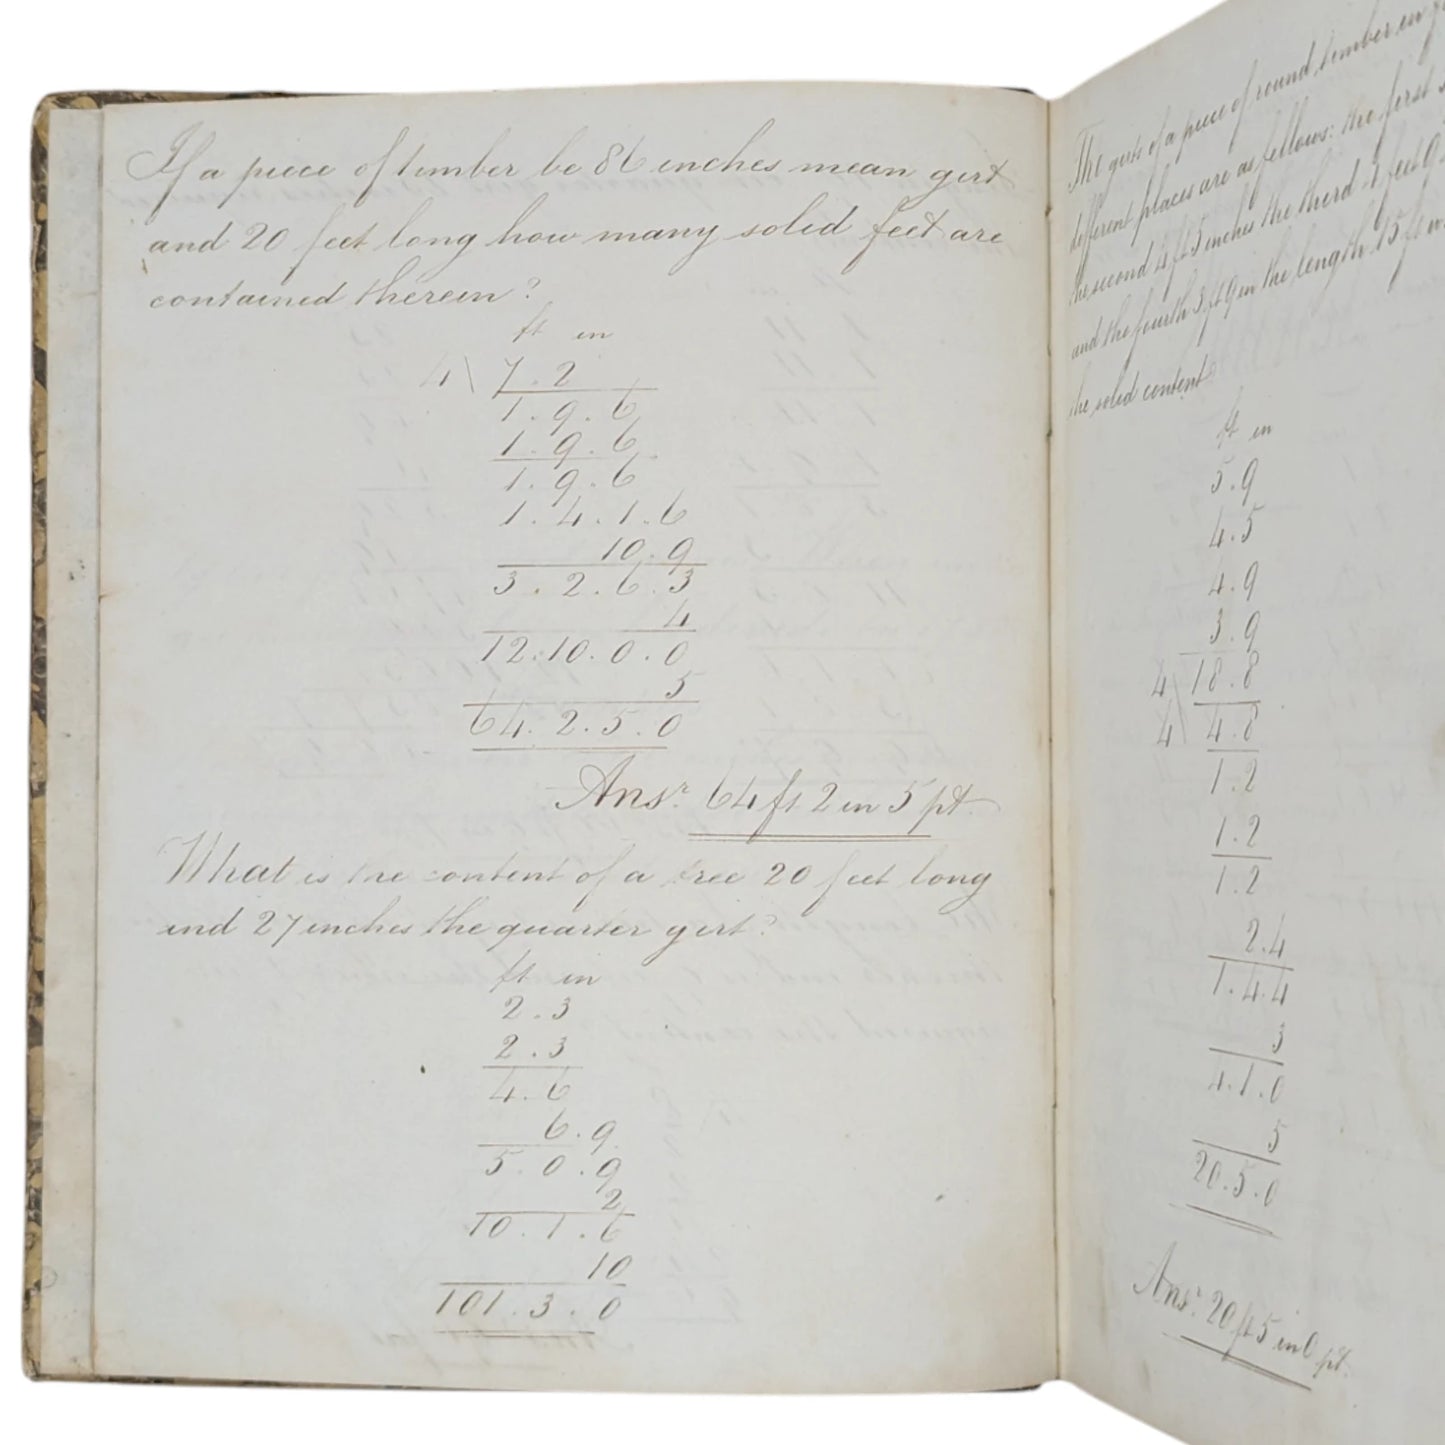 If a piece of timber be 86 inches mean girt
and 20 feet long how many solid feet are
contained therein?
ft in
4\ 7.2
1.9.6
1.9.6
1.9.6
1.4.1.6
10.9
3.2.6.3
4
12.10.0.0
5
64.2.5.0
Ansr. 64 ft 2 in 5 pt.
What is the content of a tree 20 feet long
and 27 inches the quarter girt?
ft in
2.3
2.3
4.6
6.9
5.0.9
2
10.1.6
10
101.3.0
The girts of a piece of round timber in
different places are as follows: the first
the second 4 ft 5 inches the third 4 feet 9
and the fourth 3 ft 9 in the length 15 ft
the solid content
ft in
5.9
4.5
4.9
3.9
4\ 18.8
4\ 4.8
1.2
1.2
1.2
2.4
1.4.4
3
4.1.0
5
20.5.0
Ansr. 20 ft 5 in 0 pt.